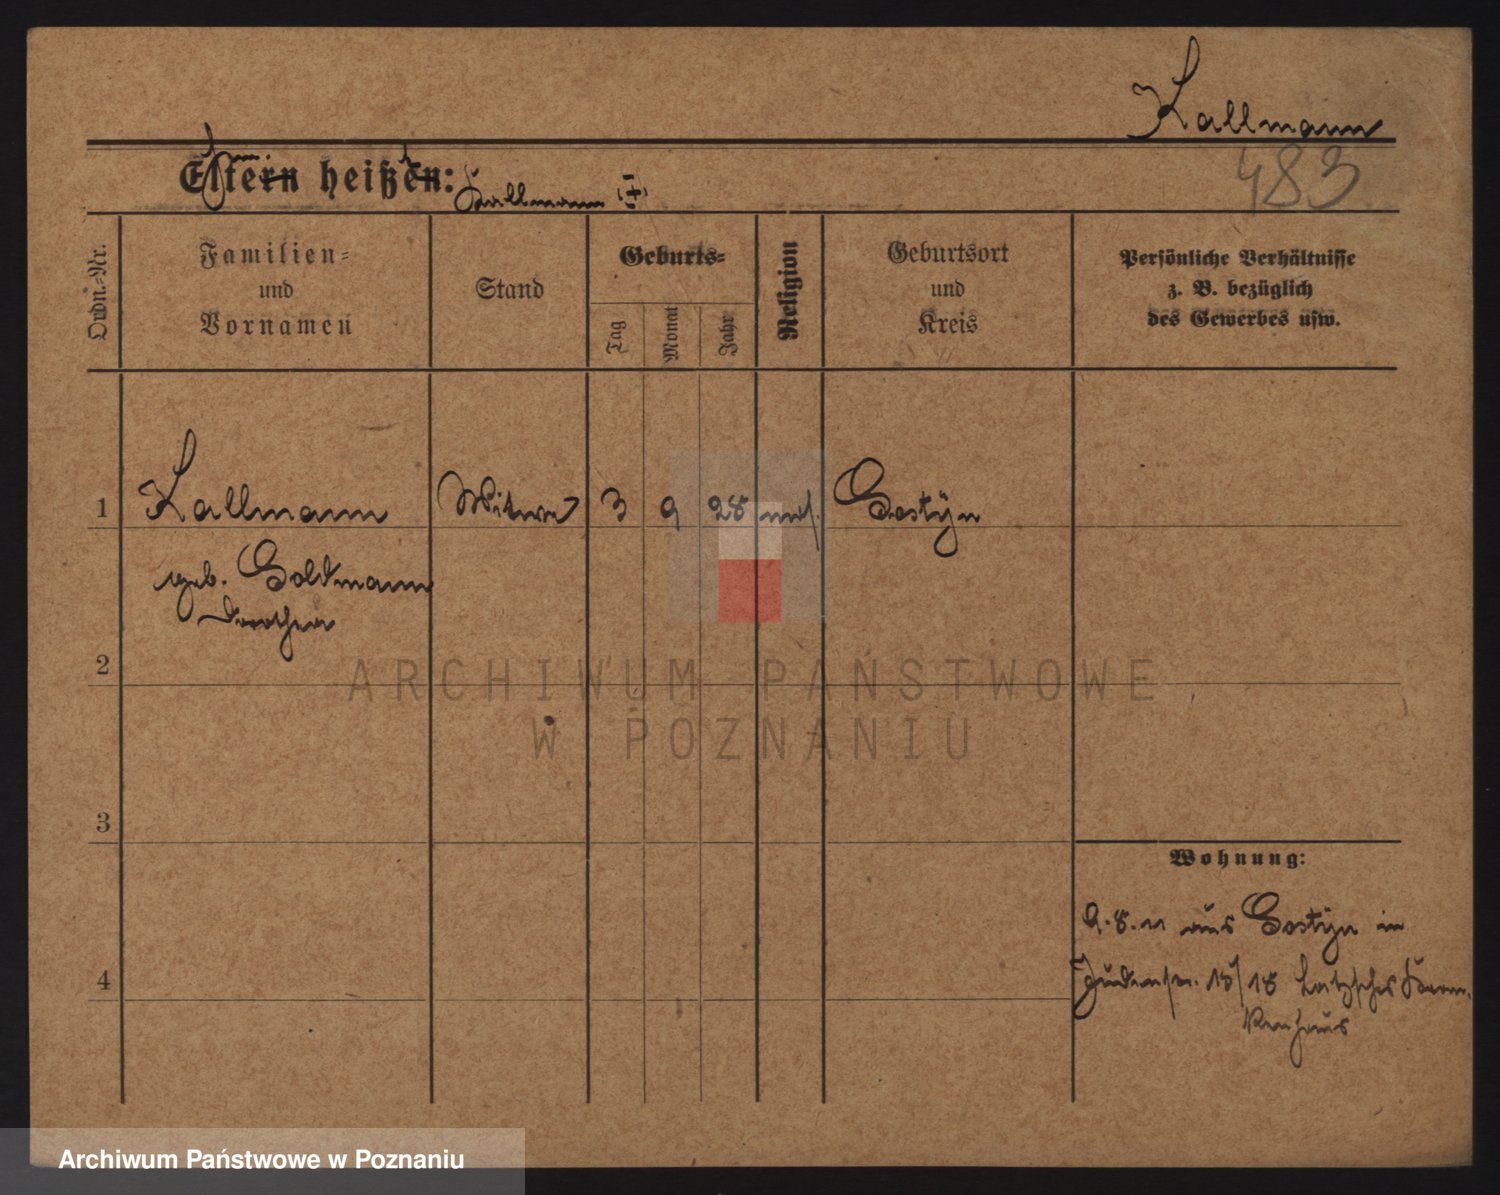 Kallmann
483
Eltern heißen: Kallmann (†)
Ordn.-Nr.
Familien-
und
Vornamen
Stand
Geburts-
Tag
Monat
Jahr
Religion
Geburtsort
und
Kreis
Persönliche Verhältnisse
z. B. bezüglich
des Gewerbes usw.
1 Kallmann Witwe 3 9 28 mos. Gostÿn
geb. Goldmann
Dorothea
2
ARCHIWUM PAŃSTWOWE
W POZNANIU
3
Wohnung:
9.8.11 aus Gostÿn in
Judenstr. 15/18 Latzsches Kran-
kenhaus
4
Archiwum Państwowe w Poznaniu